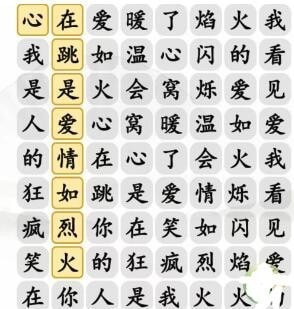 心在爱暖了焰火我
我跳如温心闪的看
是是火会窝烁爱见
人爱心窝暖温如爱
的情在心了会火我
狂如跳是爱情烁看
疯烈你在笑如闪见
笑火的狂疯烈焰爱
在你人是我火火